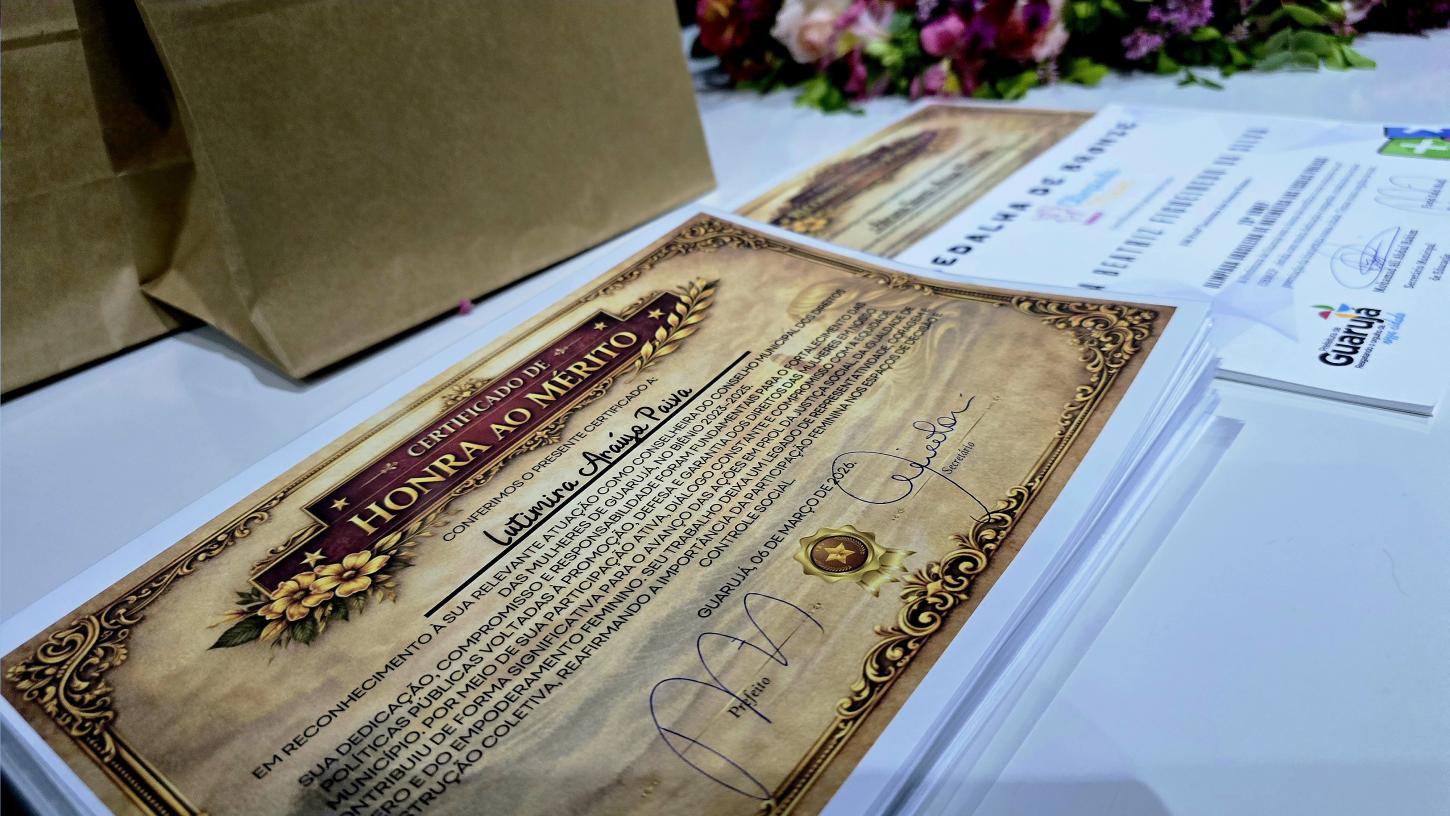 CERTIFICADO DE
HONRA AO MÉRITO
CONFERIMOS O PRESENTE CERTIFICADO A:
Lutimira Araújo Paiva
EM RECONHECIMENTO À SUA RELEVANTE ATUAÇÃO COMO CONSELHEIRA DO CONSELHO MUNICIPAL DOS DIREITOS
DAS MULHERES DE GUARUJÁ, NO BIÊNIO 2023-2025.
SUA DEDICAÇÃO, COMPROMISSO E RESPONSABILIDADE FORAM FUNDAMENTAIS PARA O FORTALECIMENTO DAS
POLÍTICAS PÚBLICAS VOLTADAS À PROMOÇÃO, DEFESA E GARANTIA DOS DIREITOS DAS MULHERES EM NOSSO
MUNICÍPIO. POR MEIO DE SUA PARTICIPAÇÃO ATIVA, DIÁLOGO CONSTANTE E COMPROMISSO COM A EQUIDADE,
CONTRIBUIU DE FORMA SIGNIFICATIVA PARA O AVANÇO DAS AÇÕES EM PROL DA JUSTIÇA SOCIAL, DA IGUALDADE DE
NERO E DO EMPODERAMENTO FEMININO. SEU TRABALHO DEIXA UM LEGADO DE REPRESENTATIVIDADE, CORAGEM
STRUÇÃO COLETIVA, REAFIRMANDO A IMPORTÂNCIA DA PARTICIPAÇÃO FEMININA NOS ESPAÇOS DE DEBATE E
CONTROLE SOCIAL
GUARUJÁ, 06 DE MARÇO DE 2026.
Prefeito
Secretário
EDALHA DE BRONZE
BEATRIZ FIGUEIREDO DA SILVA
Secretário Municipal
de Educação
Prefeitura de
Guarujá